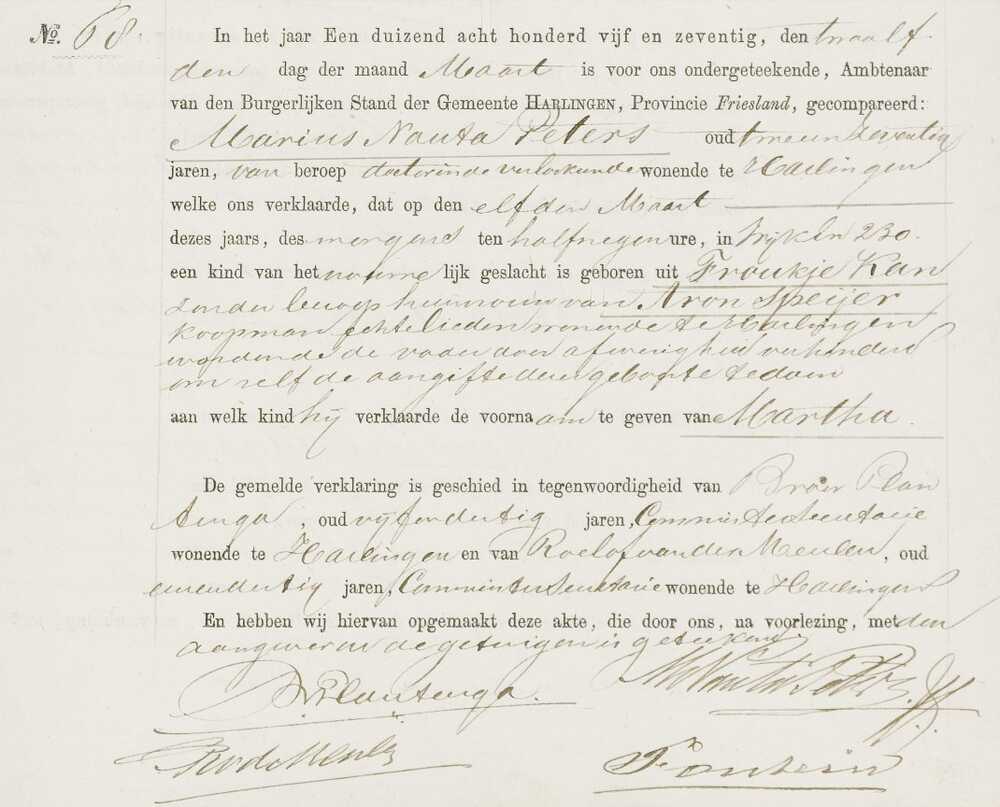 No. 68. In het jaar Een duizend acht honderd vijf en zeventig, den twaalf-
den dag der maand Maart is voor ons ondergeteekende, Ambtenaar
van den Burgerlijken Stand der Gemeente HARLINGEN, Provincie Friesland, gecompareerd:
Marius Nauta Peters oud twee en zeventig
jaren, van beroep doctor in de verloskunde wonende te Harlingen
welke ons verklaarde, dat op den elfden Maart
dezes jaars, des morgens ten half negen ure, in Wijk Ln 230.
een kind van het vrouwelijk geslacht is geboren uit Froukje Kan
zonder beroep huisvrouw van Aron Speijer
koopman echtelieden wonende te Harlingen
wordende de vader door afwezigheid verhinderd
om zelf de aangifte dezer geboorte te doen
aan welk kind hij verklaarde de voornaam te geven van Martha.
De gemelde verklaring is geschied in tegenwoordigheid van Broer Plan
tenga, oud vijf en dertig jaren, Commis ter Secretarie
wonende te Harlingen en van Roelof van der Meulen, oud
een en dertig jaren, Commis ter Secretarie wonende te Harlingen
En hebben wij hiervan opgemaakt deze akte, die door ons, na voorlezing, met den
aangever en de getuigen is geteekend.
B Plantenga. M Nauta Peters
R v d Meulen Fontein